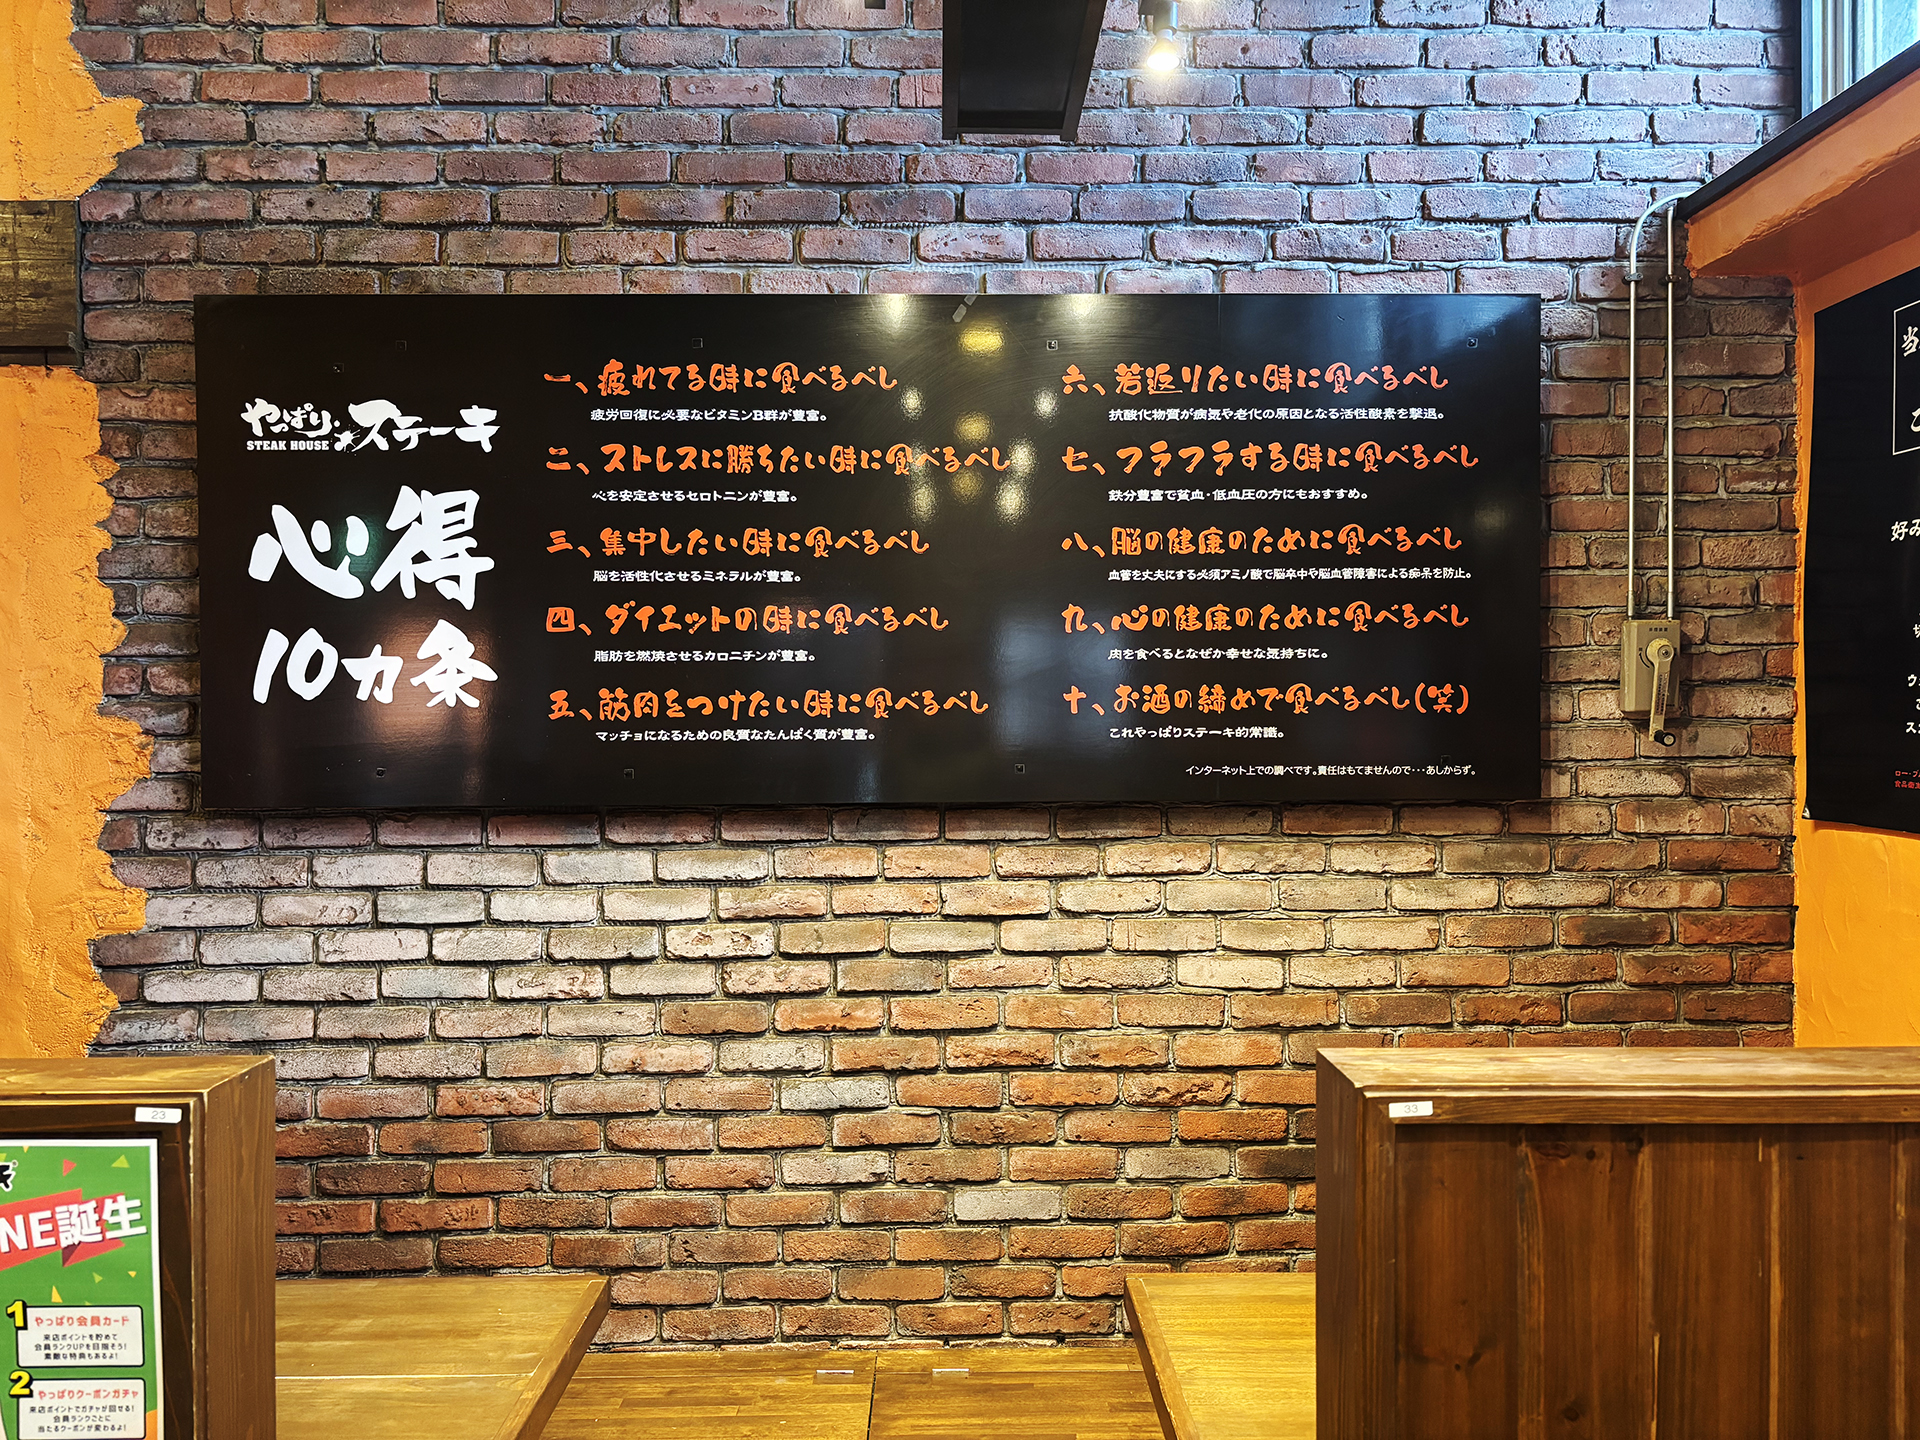 やっぱりステーキ
STEAK HOUSE
心得
10カ条
一、疲れてる時に食べるべし
疲労回復に必要なビタミンB群が豊富。
二、ストレスに勝ちたい時に食べるべし
心を安定させるセロトニンが豊富。
三、集中したい時に食べるべし
脳を活性化させるミネラルが豊富。
四、ダイエットの時に食べるべし
脂肪を燃焼させるカロニチンが豊富。
五、筋肉をつけたい時に食べるべし
マッチョになるための良質なたんぱく質が豊富。
六、若返りたい時に食べるべし
抗酸化物質が病気や老化の原因となる活性酸素を撃退。
七、フラフラする時に食べるべし
鉄分豊富で貧血・低血圧の方にもおすすめ。
八、脳の健康のために食べるべし
血管を丈夫にする必須アミノ酸で脳卒中や脳血管障害による痴呆を防止。
九、心の健康のために食べるべし
肉を食べるとなぜか幸せな気持ちに。
十、お酒の締めで食べるべし(笑)
これやっぱりステーキ的常識。
インターネット上での調べです。責任はもてませんので・・・あしからず。
当
好み
ウ
ス
23
33
キ
NE誕生
1 やっぱり会員カード
来店ポイントを貯めて
会員ランクUPを目指そう!
素敵な特典もあるよ!
2 やっぱりクーポンガチャ
来店ポイントでガチャが回せる!
会員ランクごとに
当たるクーポンが変わるよ!